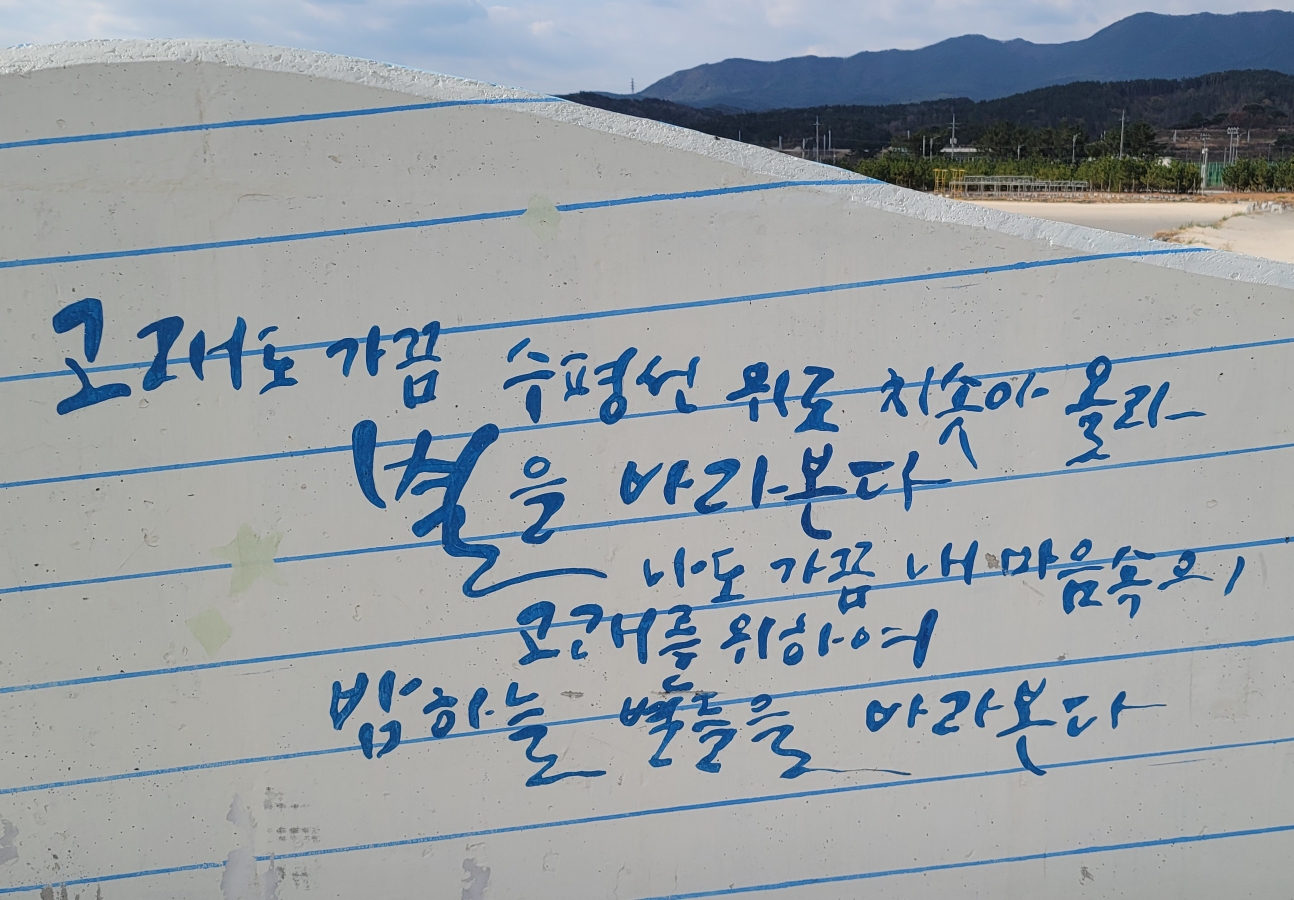 고래도 가끔 수평선 위로 치솟아 올라
별을 바라본다
나도 가끔 내 마음속의
고래를 위하여
밤하늘 별들을 바라본다